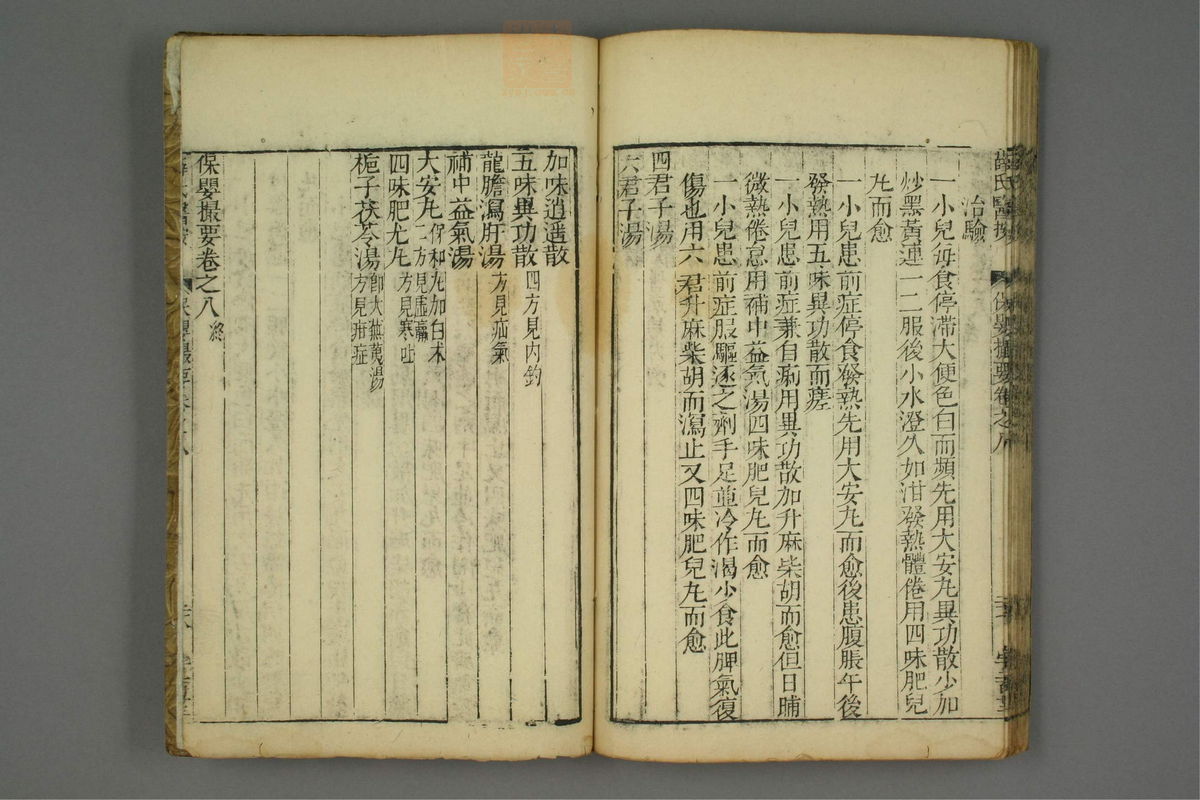 薛氏醫按 保嬰撮要卷之八
治驗
一小兒每食停滯大便色白而頻先用大安丸異功散少加
炒黑黃連一二服後小水澄久如泔發熱體倦用四味肥兒
丸而愈
一小兒患前症停食發熱先用大安丸而愈後患腹脹午後
發熱用五味異功散而瘥
一小兒患前症兼自痢用異功散加升麻柴胡而愈但日晡
微熱倦怠用補中益氣湯四味肥兒丸而愈
一小兒患前症服驅逐之劑手足並冷作渴少食此脾氣復
傷也用六君升麻柴胡而瀉止又四味肥兒丸而愈
四君子湯
六君子湯
加味逍遥散
五味異功散四方見內釣
龍膽瀉肝湯方見疝氣
補中益氣湯
大安丸保和丸加白术二方見虛羸
四味肥兒丸方見寒吐
梔子茯苓湯即大蕪荑湯方見疳症
保嬰撮要卷之八終
保嬰撮要卷之八